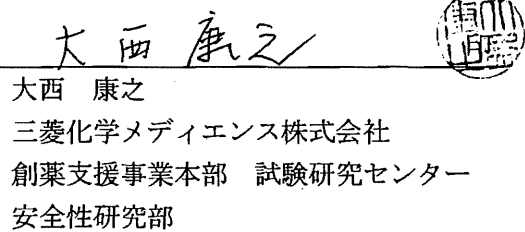 大西 康之
大西 康之
三菱化学メディエンス株式会社
創薬支援事業本部 試験研究センター
安全性研究部